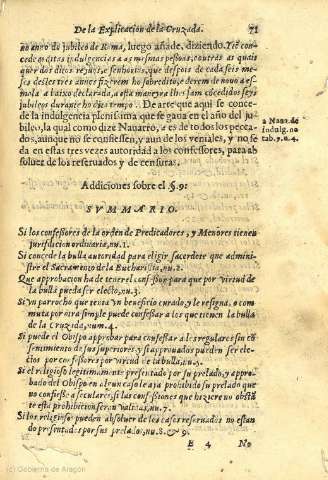 De la Explicacion de la Cruzada. 71
no anno de jubileo de Roma, luego añade, diziendo. Y è con-
cede aquestas indulgencias a as mesmas pessoas, toutras as quais
quer dos ditos reynos, e senhorios, que despois de cada seis me-
ses destes tres annos fizerem ho sobredito, e derem de nouo a es-
mola a baixo declarada, a esta maneyra lhes sam côcedidos seys
jubileus durante ho dito tempo. De arte que aqui se conce-
de la indulgencia plenissima que se gana en el año del ju-
bileo, la qual como dize Nauarro, a es de todos los pecca-
dos, aunque no se confiessen, y aun de los veniales, y no se
da en estas tres vezes autoridad a los confessores, para ab
soluer de los reseruados y de censuras.
a Naua. de
indulg. no
tab. 9. n. 4.
Addiciones sobre el §. 9.
SVMMARIO.
Si los confessores de la orden de Predicadores, y Menores tienen
jurisdicion ordinaria, nu. 1.
Si concede la bulla autoridad para eligir sacerdote que admini-
stre el Sacramento de la Eucharistia, nu. 2.
Que approbacion ha de tener el confessor para que por virtud de
la bulla pueda ser electo, nu. 3.
Si vn parrocho que tenia vn beneficio curado, y le resigna, o com
muta por otra simple puede confessar a los que tienen la bulla
de la Cruzada, num. 4.
Si puede el Obispo approbar para confessar a los regulares sin co
sentimiento de sus superiores, y si approuados pueden ser elec-
tos por confessores por virtud de la bulla, nu. 5.
Si el religioso legitimamente presentado por su prelado, y appro-
bado del Obispo en algun caso le aya prohibido su prelado que
no confiesse a seculares, si las confessiones que hiziere no obstā
te esta prohibicion seran validas, nu. 7.
Si los religiosos pueden absoluer de los casos reseruados no estan
do presentados por sus prelados, nu. 8. & 9.
E 4 No
(c) Gobierno de Aragón